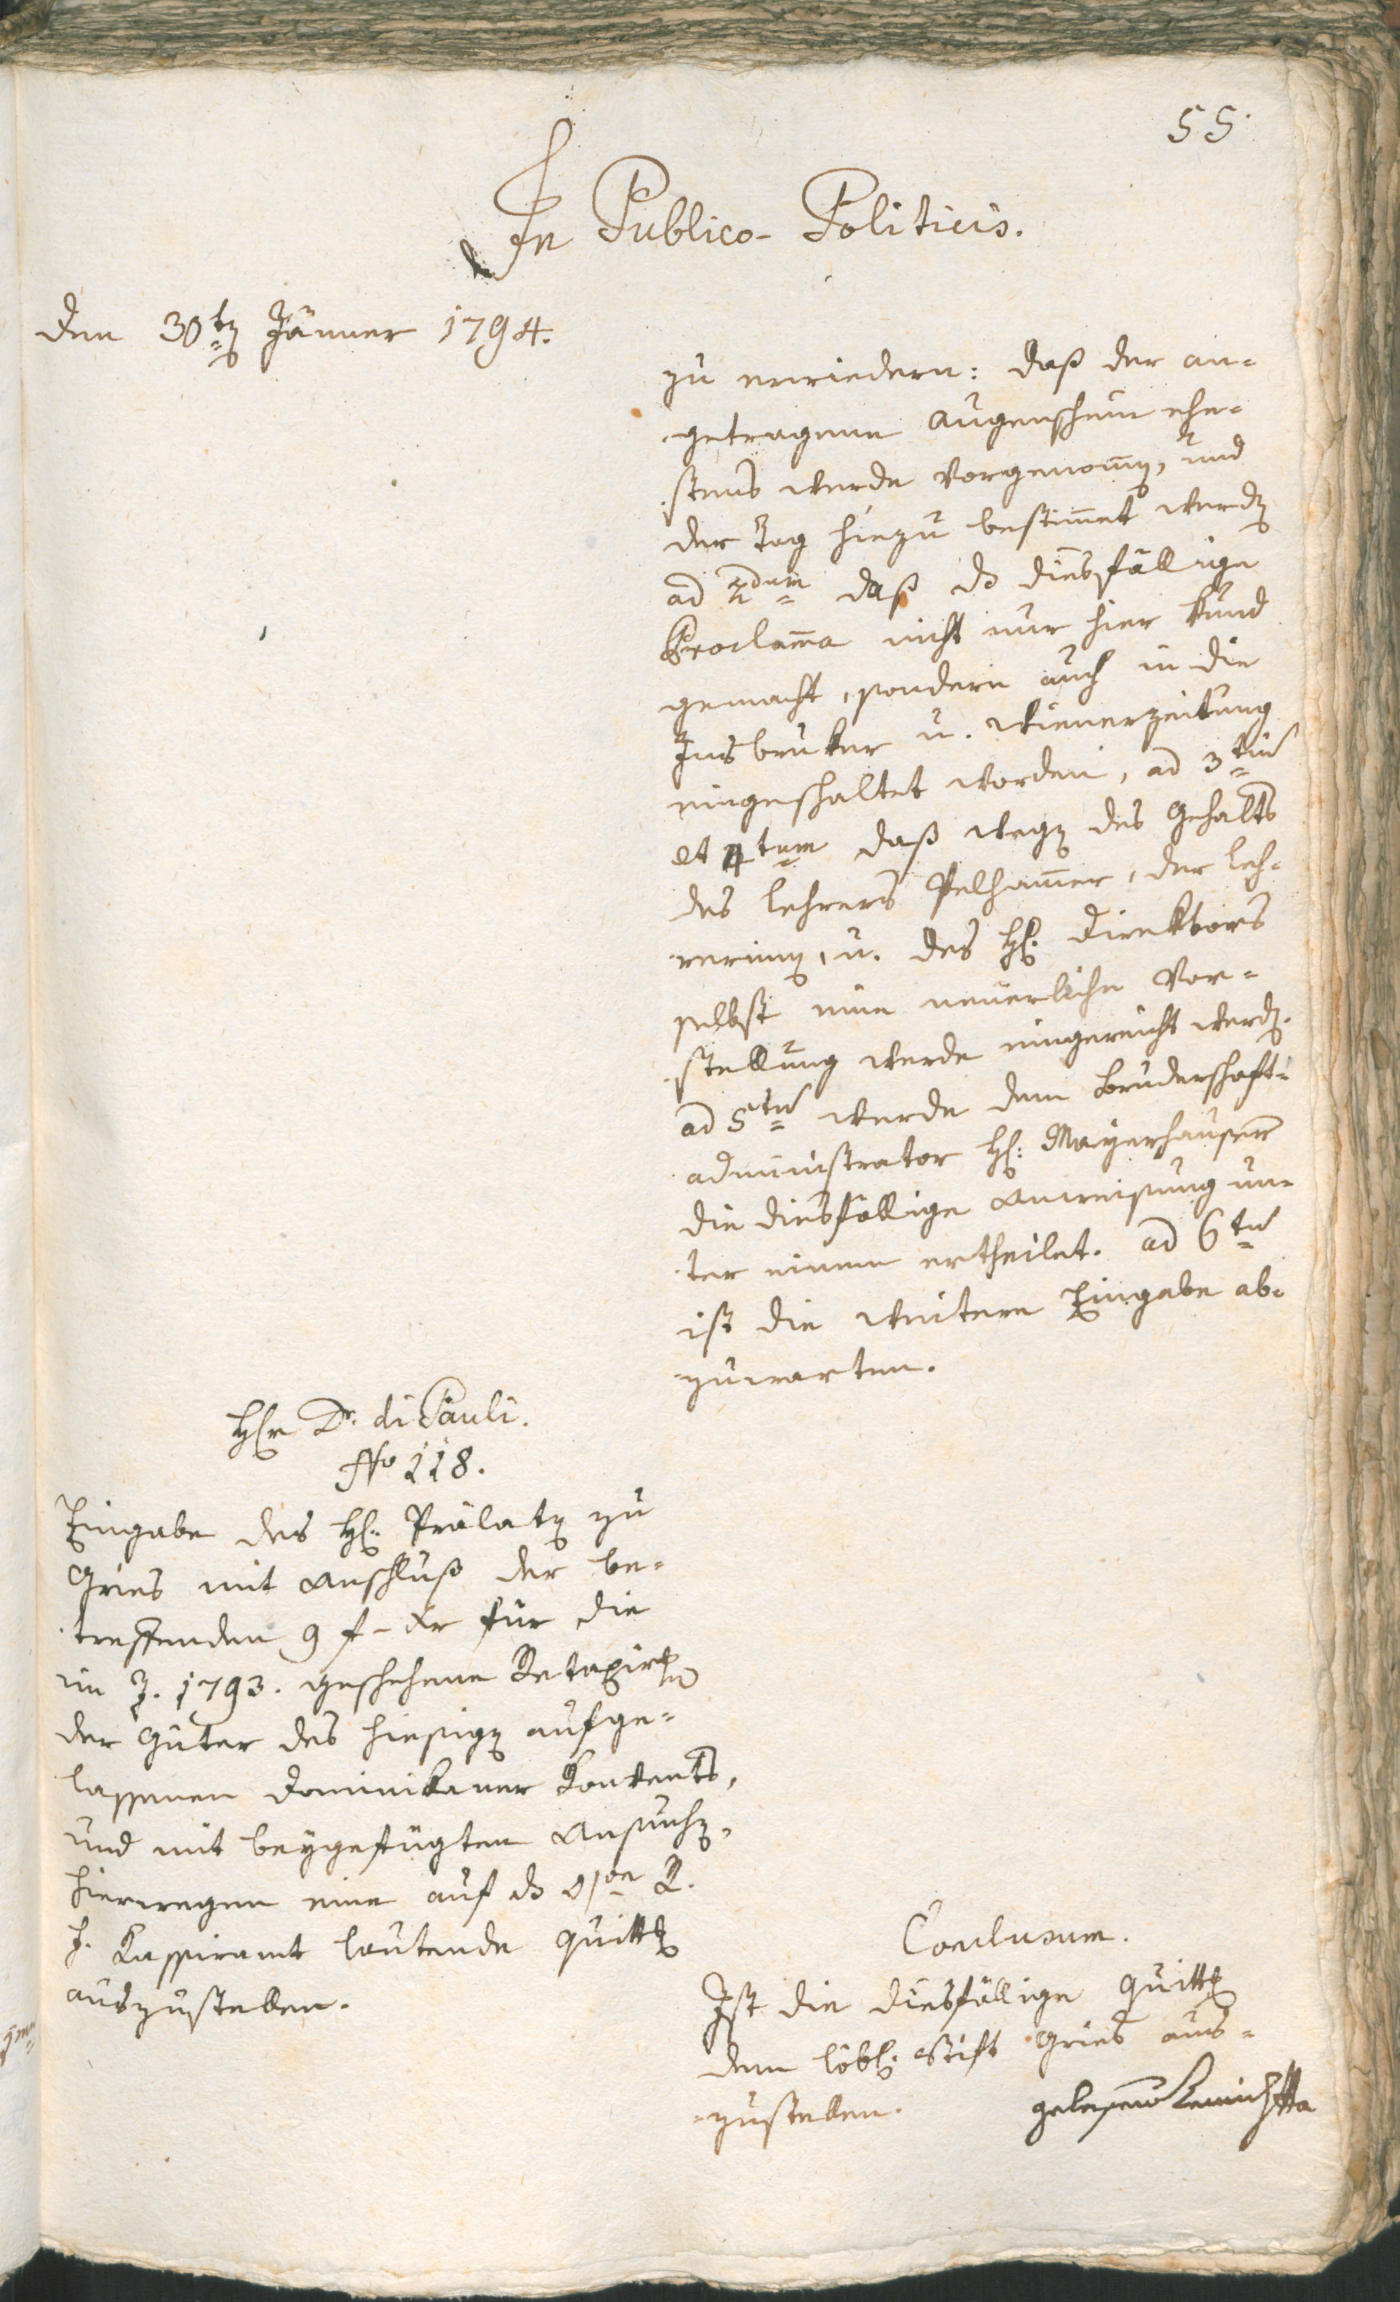 55.
In Publico-Politicis.
Den 30ten Jänner 1794.
zu erwiedern: daß der an-
getragene Augenschein ehe-
stens werde vorgenommen, und
der Tag hiezu bestimmet werden
ad 2dum daß das diesfällige
Proclama nicht nur hier kund
gemacht, sondern auch in die
Insbruker u. Wienerzeitung
eingeschaltet worden, ad 3tium
et 4tum daß wegen des Gehalts
des Lehrers Felhammer, der Leh-
rerinnen, u. des H. Direktors
selbst eine neuerliche Vor-
stellung werde eingereicht werden.
ad 5tum werde dem Bruderschaft-
administrator H: Mayerhauser
die diesfällige Anweisung un-
ter einem ertheilet. ad 6tum
ist die weitere Eingabe ab-
zuwarten.
Herr Dr. di Pauli.
No 118.
Eingabe des H. Prälaten zu
Gries mit Anschluß der be-
treffenden 9 f – xr für die
im J. 1793. geschehene Retaxirung
der Güter des hiesigen aufge-
lassenen Dominikaner Konvents,
und mit beygefügten Ansuchen,
hierwegen eine auf das
Kassiramt lautende Quittung
auszustellen.
Conclusum.
Ist die diesfällige Quittung
dem löbl. Stift Gries aus-
zustellen.
gelesen